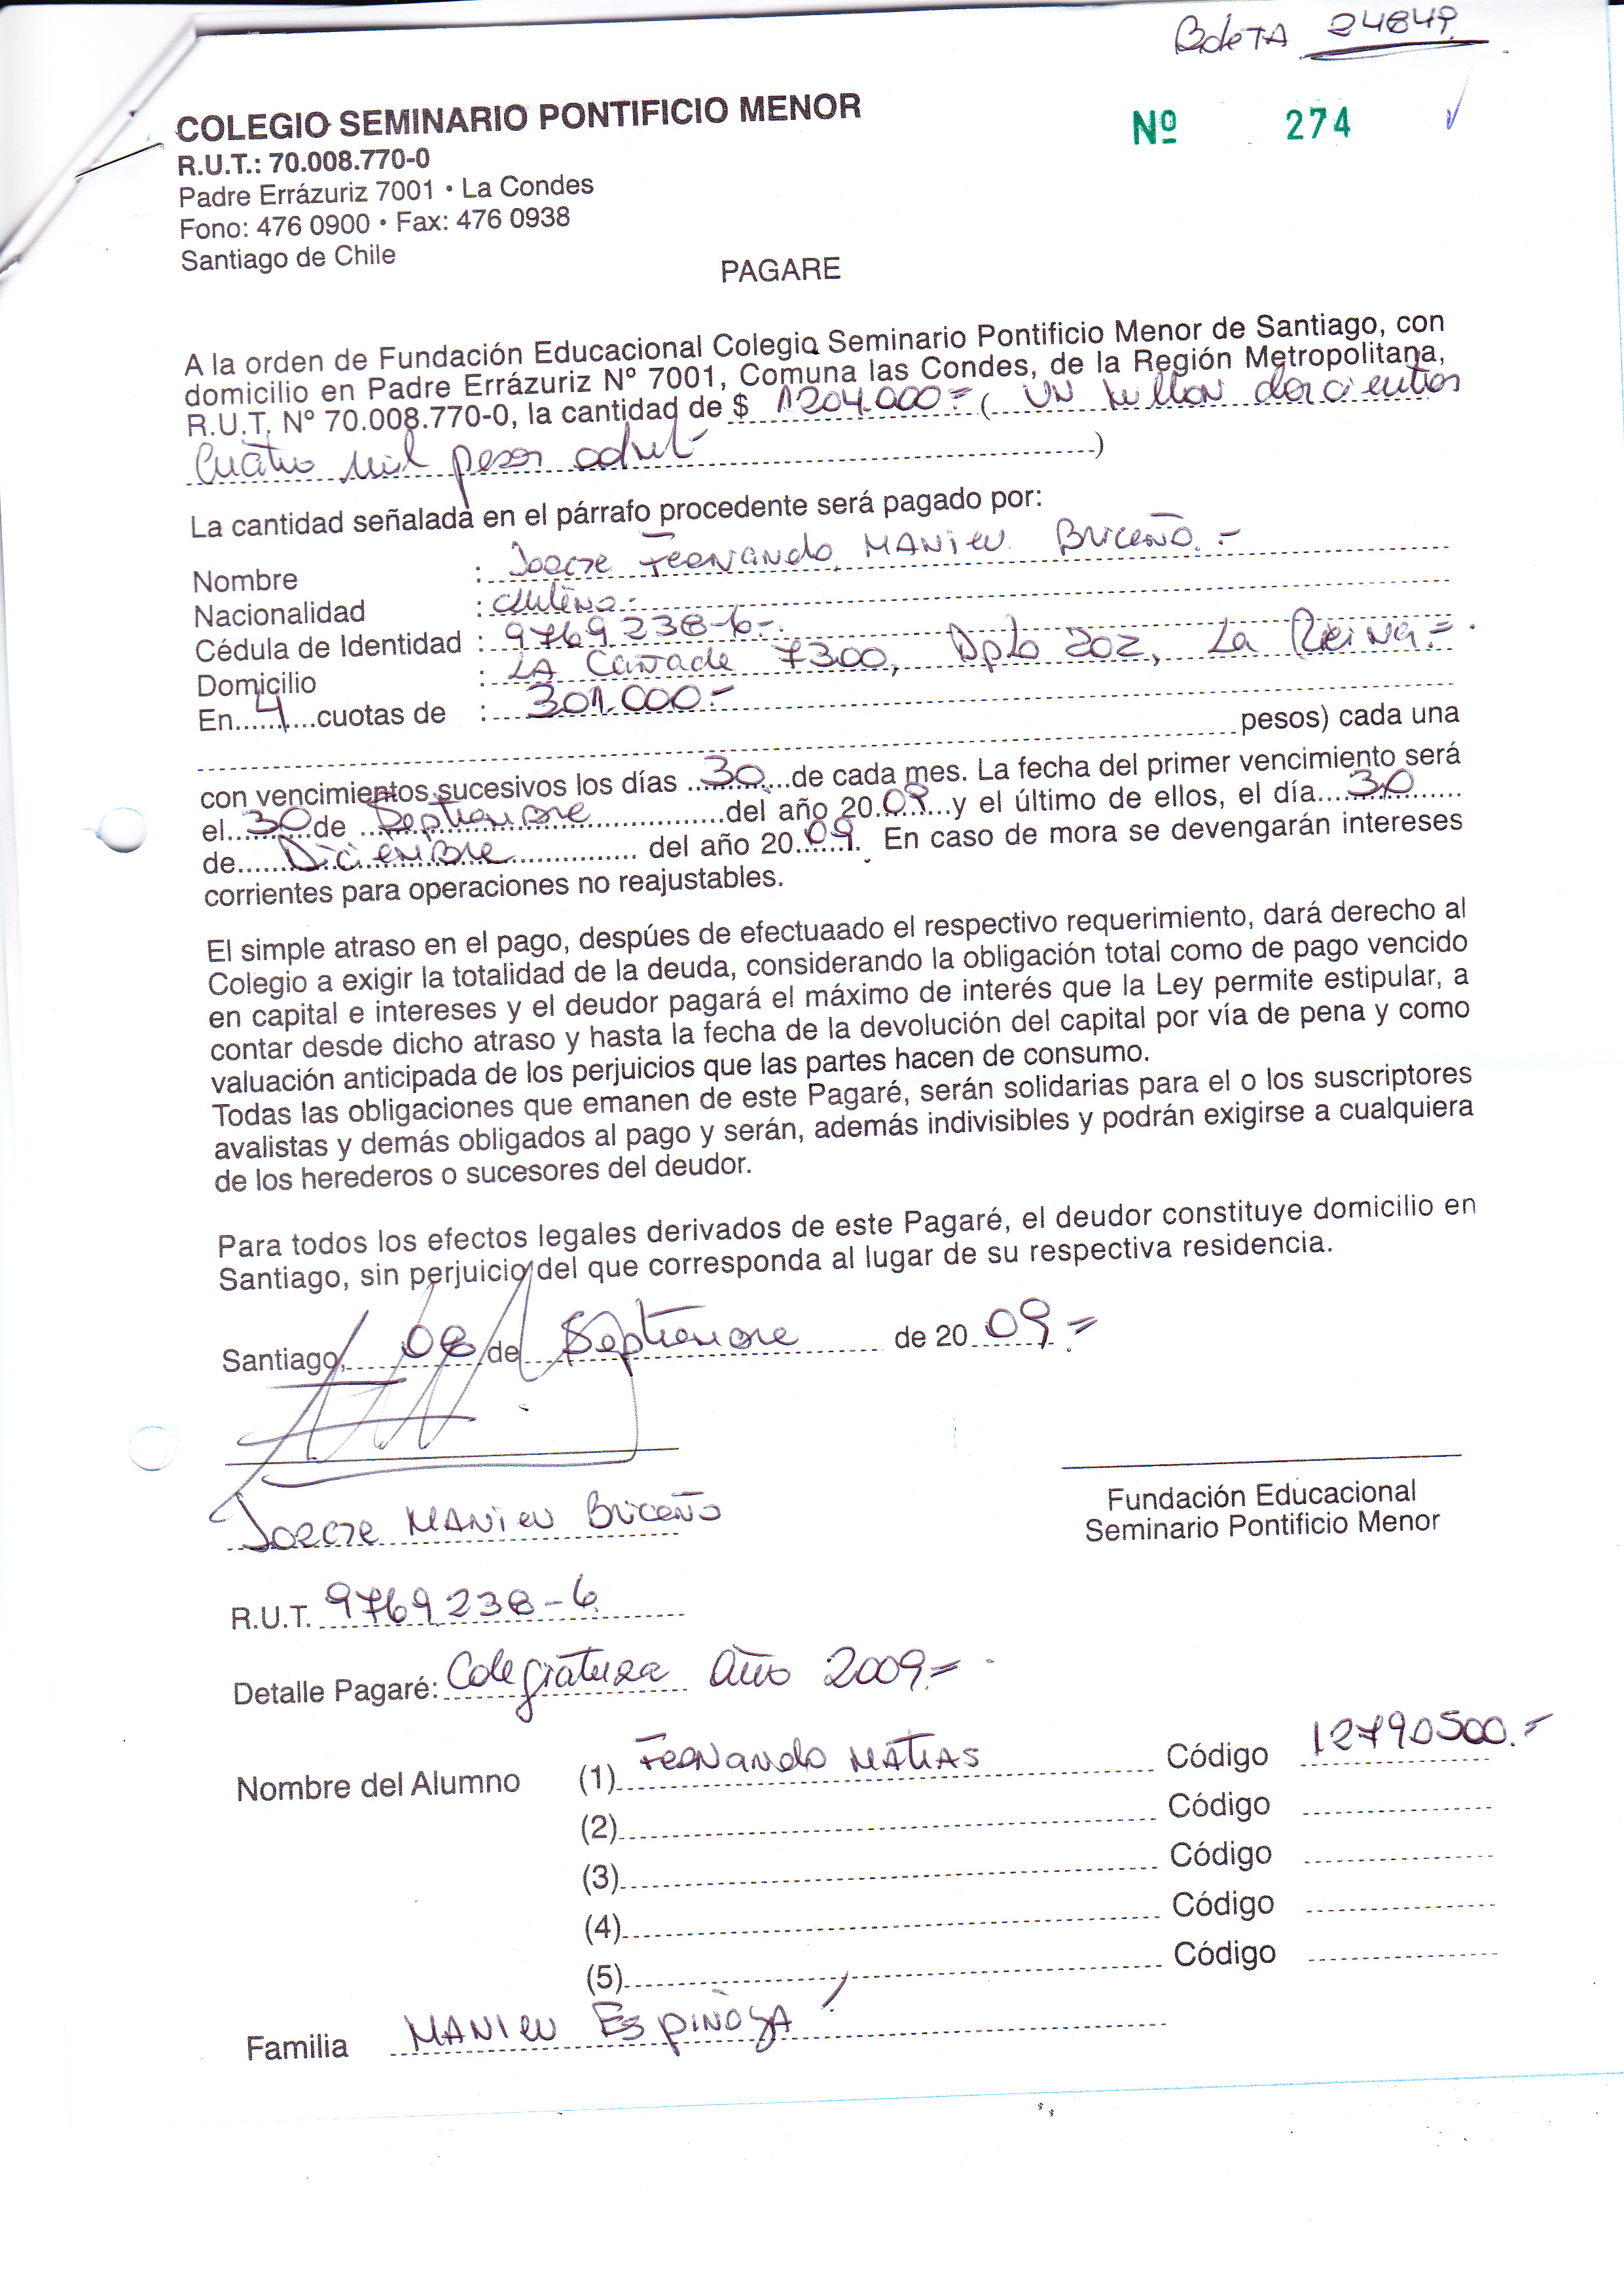 Boleta 24849
COLEGIO SEMINARIO PONTIFICIO MENOR
Nº 274
R.U.T.: 70.008.770-0
Padre Errázuriz 7001 • La Condes
Fono: 476 0900 • Fax: 476 0938
Santiago de Chile
PAGARE
A la orden de Fundación Educacional Colegio Seminario Pontificio Menor de Santiago, con
domicilio en Padre Errázuriz Nº 7001, Comuna las Condes, de la Región Metropolitana,
R.U.T. Nº 70.008.770-0, la cantidad de $ 1204.000= ( UN Millon doscientos
Cuatro mil pesos )
La cantidad señalada en el párrafo procedente será pagado por:
Nombre : Jorge Fernando MANieu Briceño.-
Nacionalidad : chileno-
Cédula de Identidad : 9769238-6-
Domicilio : LA Cañada 7300, Dpto 202, La Reina=
En 4 cuotas de : 301.000=
pesos) cada una
con vencimientos sucesivos los días 30 de cada mes. La fecha del primer vencimiento será
el 30 de Septiembre del año 2009 y el último de ellos, el día 30
de Diciembre del año 2009. En caso de mora se devengarán intereses
corrientes para operaciones no reajustables.
El simple atraso en el pago, despúes de efectuaado el respectivo requerimiento, dará derecho al
Colegio a exigir la totalidad de la deuda, considerando la obligación total como de pago vencido
en capital e intereses y el deudor pagará el máximo de interés que la Ley permite estipular, a
contar desde dicho atraso y hasta la fecha de la devolución del capital por vía de pena y como
valuación anticipada de los perjuicios que las partes hacen de consumo.
Todas las obligaciones que emanen de este Pagaré, serán solidarias para el o los suscriptores
avalistas y demás obligados al pago y serán, además indivisibles y podrán exigirse a cualquiera
de los herederos o sucesores del deudor.
Para todos los efectos legales derivados de este Pagaré, el deudor constituye domicilio en
Santiago, sin perjuicio del que corresponda al lugar de su respectiva residencia.
Santiago, 08 de Septiembre de 2009=
Jorge MANieu Briceño
Fundación Educacional
Seminario Pontificio Menor
R.U.T. 9769238-6
Detalle Pagaré: Colegiatura Año 2009=
Nombre del Alumno (1) Fernando MATIAS Código 12790500.=
(2) Código
(3) Código
(4) Código
(5) Código
Familia MANIeu EspiÑoza